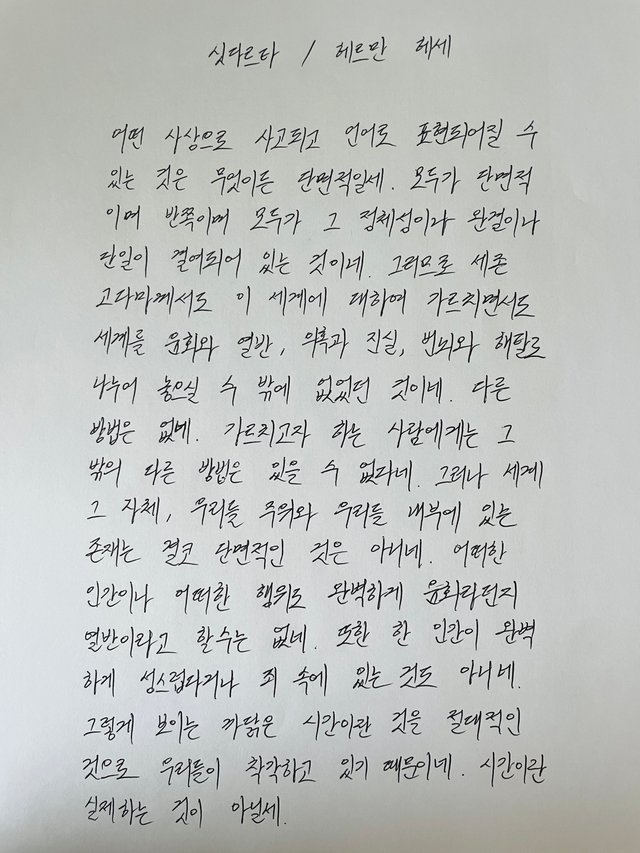 싯다르타 / 헤르만 헤세
어떤 사상으로 사고되고 언어로 표현되어질 수
있는 것은 무엇이든 단면적일세. 모두가 단면적
이며 반쪽이며 모두가 그 정체성이나 완결이나
단일이 결여되어 있는 것이네. 그러므로 세존
고다마께서도 이 세계에 대하여 가르치면서도
세계를 윤회와 열반, 의혹과 진실, 번뇌와 해탈로
나누어 놓으실 수 밖에 없었던 것이네. 다른
방법은 없네. 가르치고자 하는 사람에게는 그
밖의 다른 방법은 있을 수 없다네. 그러나 세계
그 자체, 우리들 주위와 우리들 내부에 있는
존재는 결코 단면적인 것은 아니네. 어떠한
인간이나 어떠한 행위도 완벽하게 윤회라던지
열반이라고 할수는 없네. 또한 한 인간이 완벽
하게 성스럽다거나 죄 속에 있는 것도 아니네.
그렇게 보이는 까닭은 시간이란 것을 절대적인
것으로 우리들이 착각하고 있기 때문이네. 시간이란
실재하는 것이 아닐세.